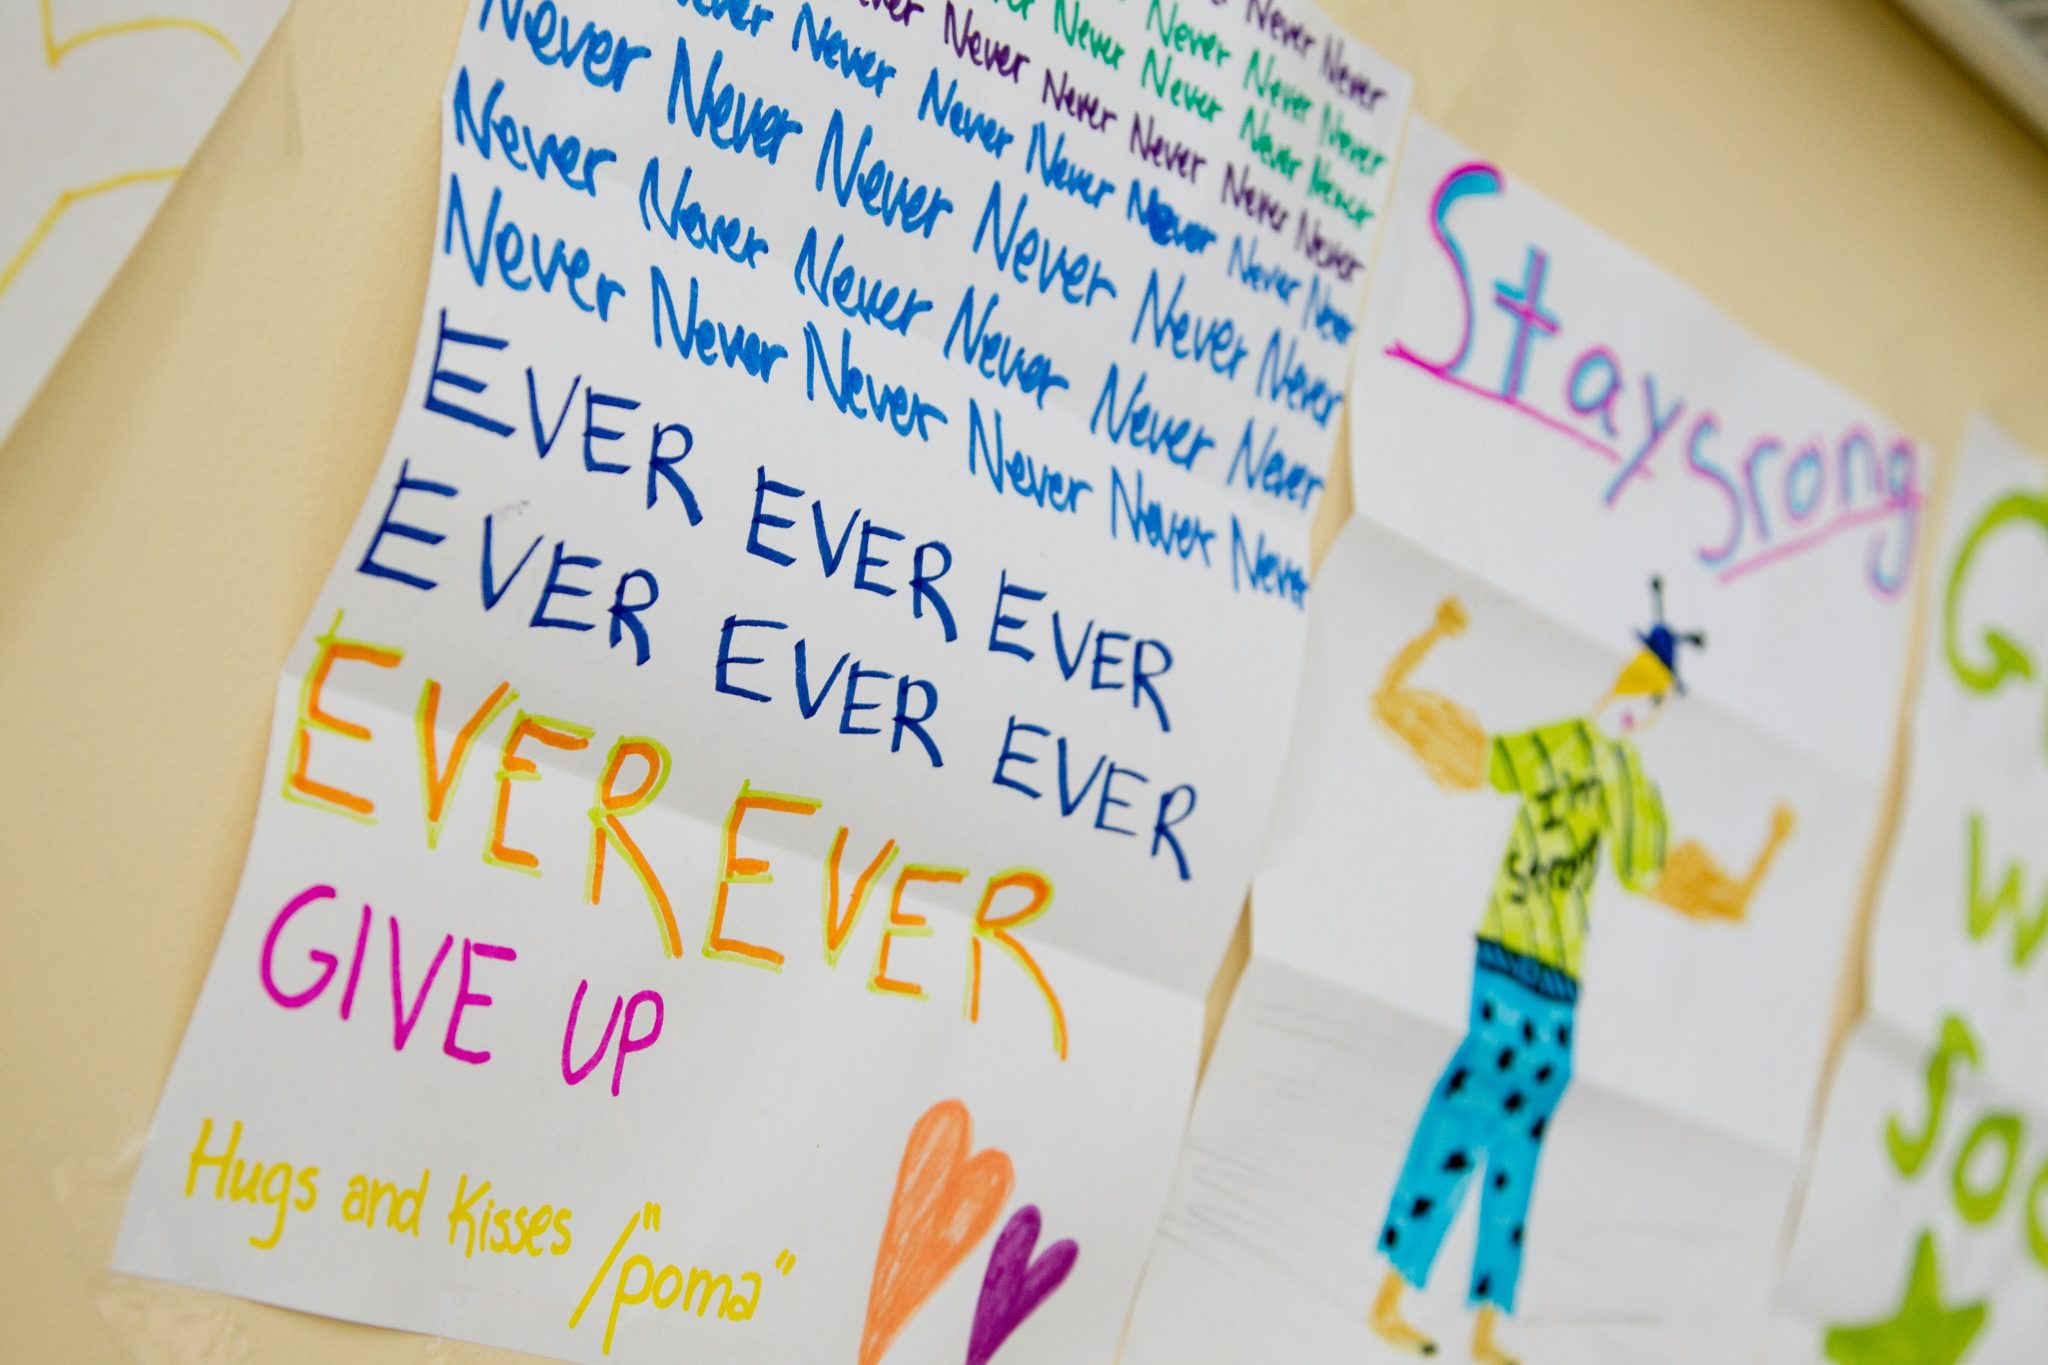 Never Never
Never Never Never
Never Never Never Never
Never Never Never Never Never
Never Never Never Never Never Never
Never Never Never Never Never Never
Never Never Never Never Never Never
Never Never Never Never Never Never
EVER EVER EVER
EVER EVER EVER
EVER EVER
GIVE UP
Hugs and Kisses /"poma"
Stay srong
I'm
G
W